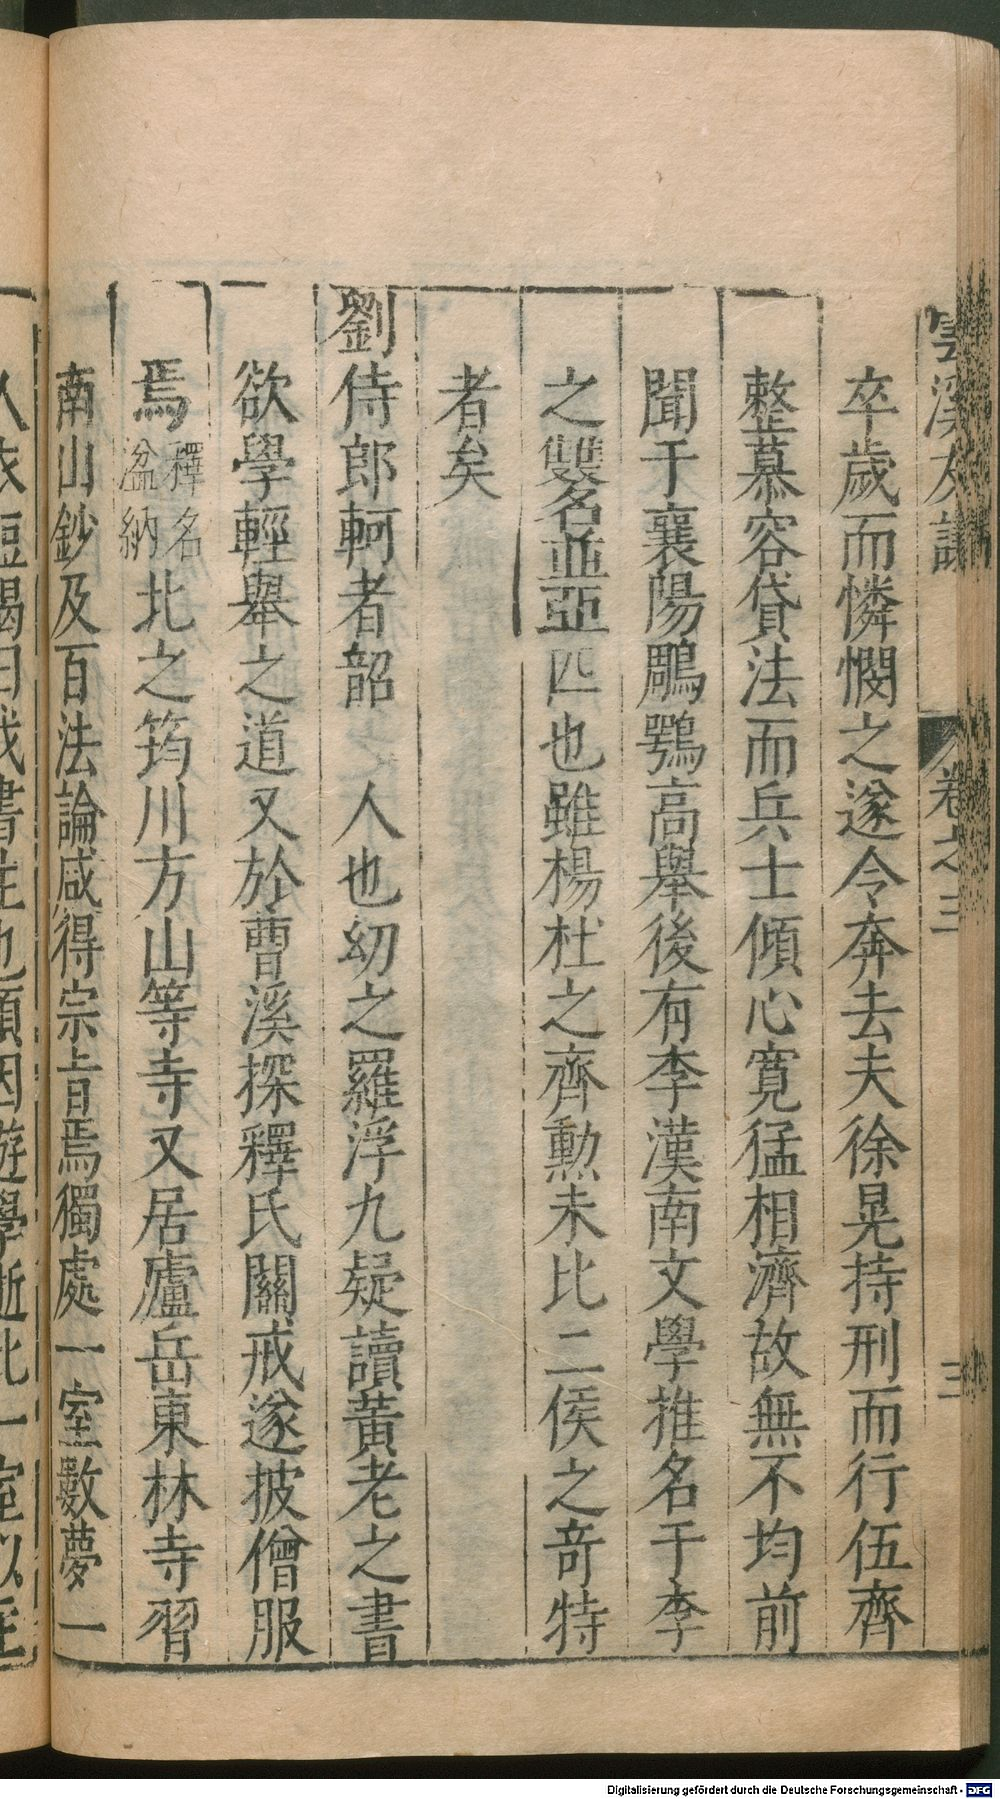 雲溪友議 卷之三 三
卒歲而憐憫之遂令奔去夫徐晃持刑而行伍齊
整慕容貸法而兵士傾心寬猛相濟故無不均前
聞于襄陽鵰鶚高舉後有李漢南文學推名于李
之雙名並亞匹也雖楊杜之齊勳未比二侯之竒特
者矣
劉侍郎軻者韶 人也幼之羅浮九疑讀黃老之書
欲學輕舉之道又於曹溪探釋氏關戒遂披僧服
焉釋名
溢納
北之筠川方山等寺又居廬岳東林寺習
南山鈔及百法論咸得宗旨焉獨處一室數夢一
人衣短褐曰我書生也頃因遊學逝此一室以主
Digitalisierung gefördert durch die Deutsche Forschungsgemeinschaft - DFG